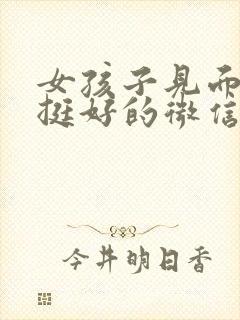 女孩子见而
挺好的微信
今井明日香